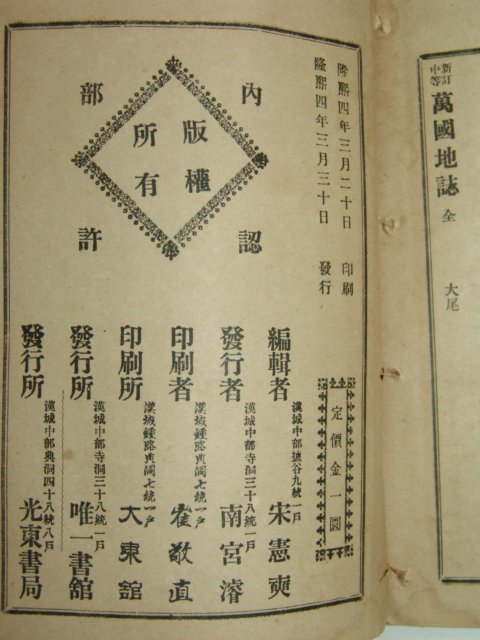 新訂中等 萬國地誌 全 大尾
隆熙四年三月二十日 印刷
隆熙四年三月三十日 發行
定價金一圜
內部
認許
版權
所有
編輯者 漢城中部壚谷九統一戶 宋憲奭
發行者 漢城中部寺洞三十八統一戶 南宮濬
印刷者 漢城鍾路典洞七統一戶 崔敬直
印刷所 漢城鍾路典洞七統一戶 大東館
發行所 漢城中部寺洞三十八統一戶 唯一書館
發行所 漢城中部典洞四十八統八戶 光東書局